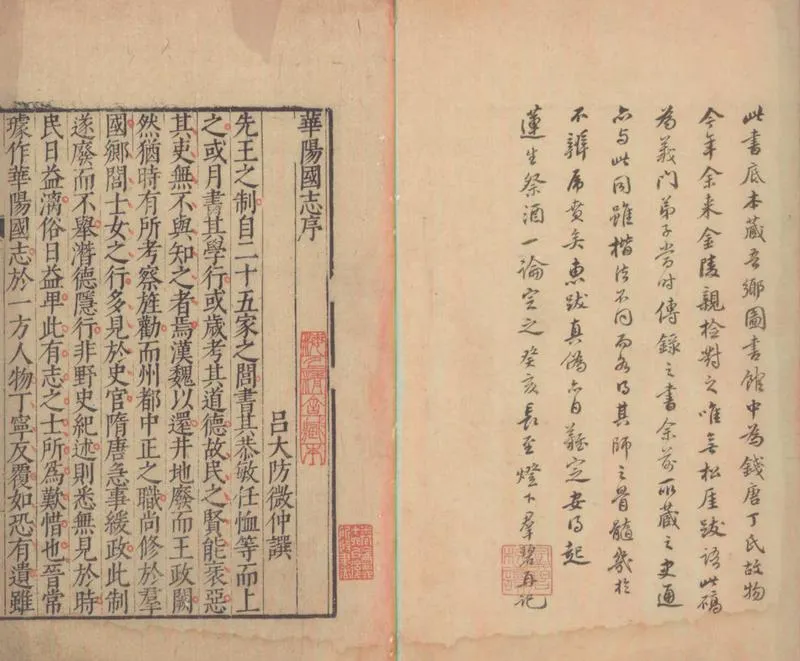 此書底本藏吾鄉圖書館中為錢唐丁氏故物
今年余来金陵親檢對之唯無松厓跋語此碻
為義門弟子當时傳錄之書余前所藏之史通
亦与此同雖楷法不同而各得其師之骨髓幾於
不辨虎賁矣惠跋真偽亦自難定安得起
蓮生祭酒一論定之癸亥長至燈下羣碧再記
華陽國志序
呂大防微仲譔
先王之制自二十五家之閭書其恭敏任恤等而上
之或月書其學行或歲考其道德故民之賢能衺惡
其吏無不與知之者焉漢魏以還井地廢而王政闕
然猶時有所考察旌勸而州都中正之職尚修於羣
國鄉閭士女之行多見於史官隋唐急事緩政此制
遂廢而不舉潛德隱行非野史紀述則悉無見於時
民日益漓俗日益卑此有志之士所為歎惜也晉常
璩作華陽國志於一方人物丁寧反覆如恐有遺雖